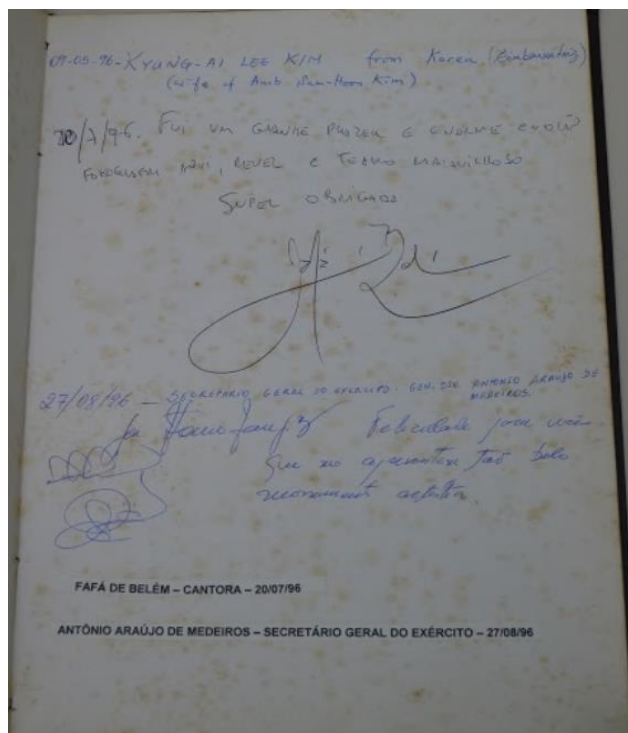 09-05-96-KYUNG-AI LEE KIM from Korea (Embaixatriz)
(wife of Amb Kim)
20/7/96. FOI UM GRANDE PRAZER E ENORME EMOÇÃO
AQUI, REVER O TEATRO MARAVILHOSO
SUPER OBRIGADA
27/08/96 — SECRETÁRIO GERAL DO EXÉRCITO. GEN. ANTONIO ARAUJO DE
MEDEIROS.
Felicidade para vocês
que tão belo
FAFÁ DE BELÉM – CANTORA – 20/07/96
ANTÔNIO ARAÚJO DE MEDEIROS – SECRETÁRIO GERAL DO EXÉRCITO – 27/08/96